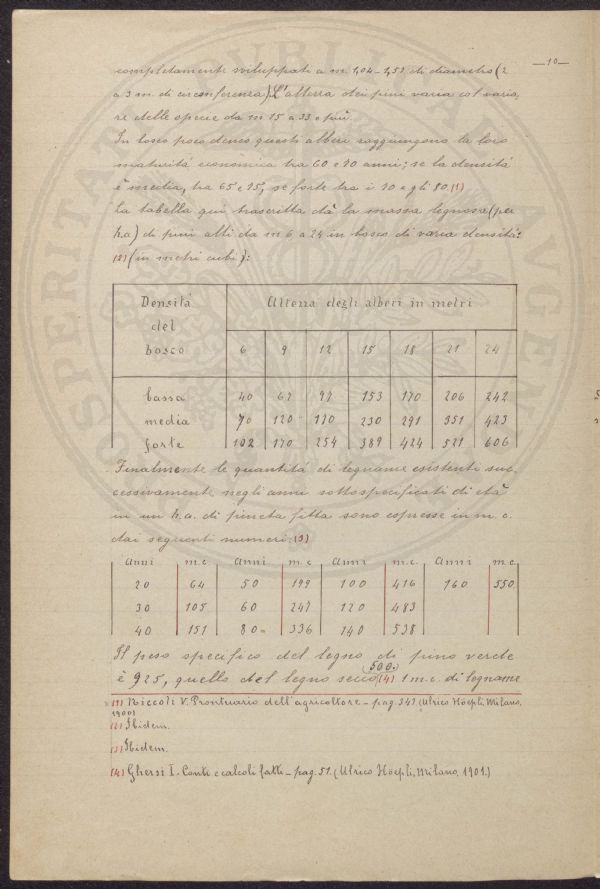 —10—
completamente sviluppati a m. 1,04-1,53 di diametro (2
a 3 m. di circonferenza). L'altezza dei pini varia col varia,
re delle specie da m 15 a 33 e più.
In bosco poco denso questi alberi raggiungono la loro
maturità economica tra 60 e 70 anni; se la densità
è media, tra 65 e 75, se forte tra i 70 e gli 80. (1)
La tabella qui trascritta dà la massa legnosa (per
h.a) di pini alti da m 6 a 24 in bosco di varia densità:
(2) (in metri cubi):
Densità del bosco | Altezza degli alberi in metri
6 9 12 15 18 21 24
bassa 40 67 97 153 170 206 242
media 70 120 170 230 291 351 423
forte 102 170 254 389 424 521 606
Finalmente le quantità di legname esistenti suc,
cessivamente negli anni sottospecificati di età
in un h.a. di pineta fitta sono espresse in m. c.
dai seguenti numeri: (3)
Anni m.c. Anni m.c. Anni m.c. Anni m.c.
20 64 50 199 100 416 160 550
30 105 60 247 120 483
40 151 80 336 140 538
Il peso specifico del legno di pino verde
è 925, quello del legno secco (500.) (4) 1 m.c. di legname
(1) Niccoli V. Prontuario dell'agricoltore - pag. 347 (Ulrico Höepli, Milano,
1900)
(2) Ibidem.
(3) Ibidem.
(4) Ghersi I. Conti e calcoli fatti - pag. 51. (Ulrico Höepli, Milano, 1901.)